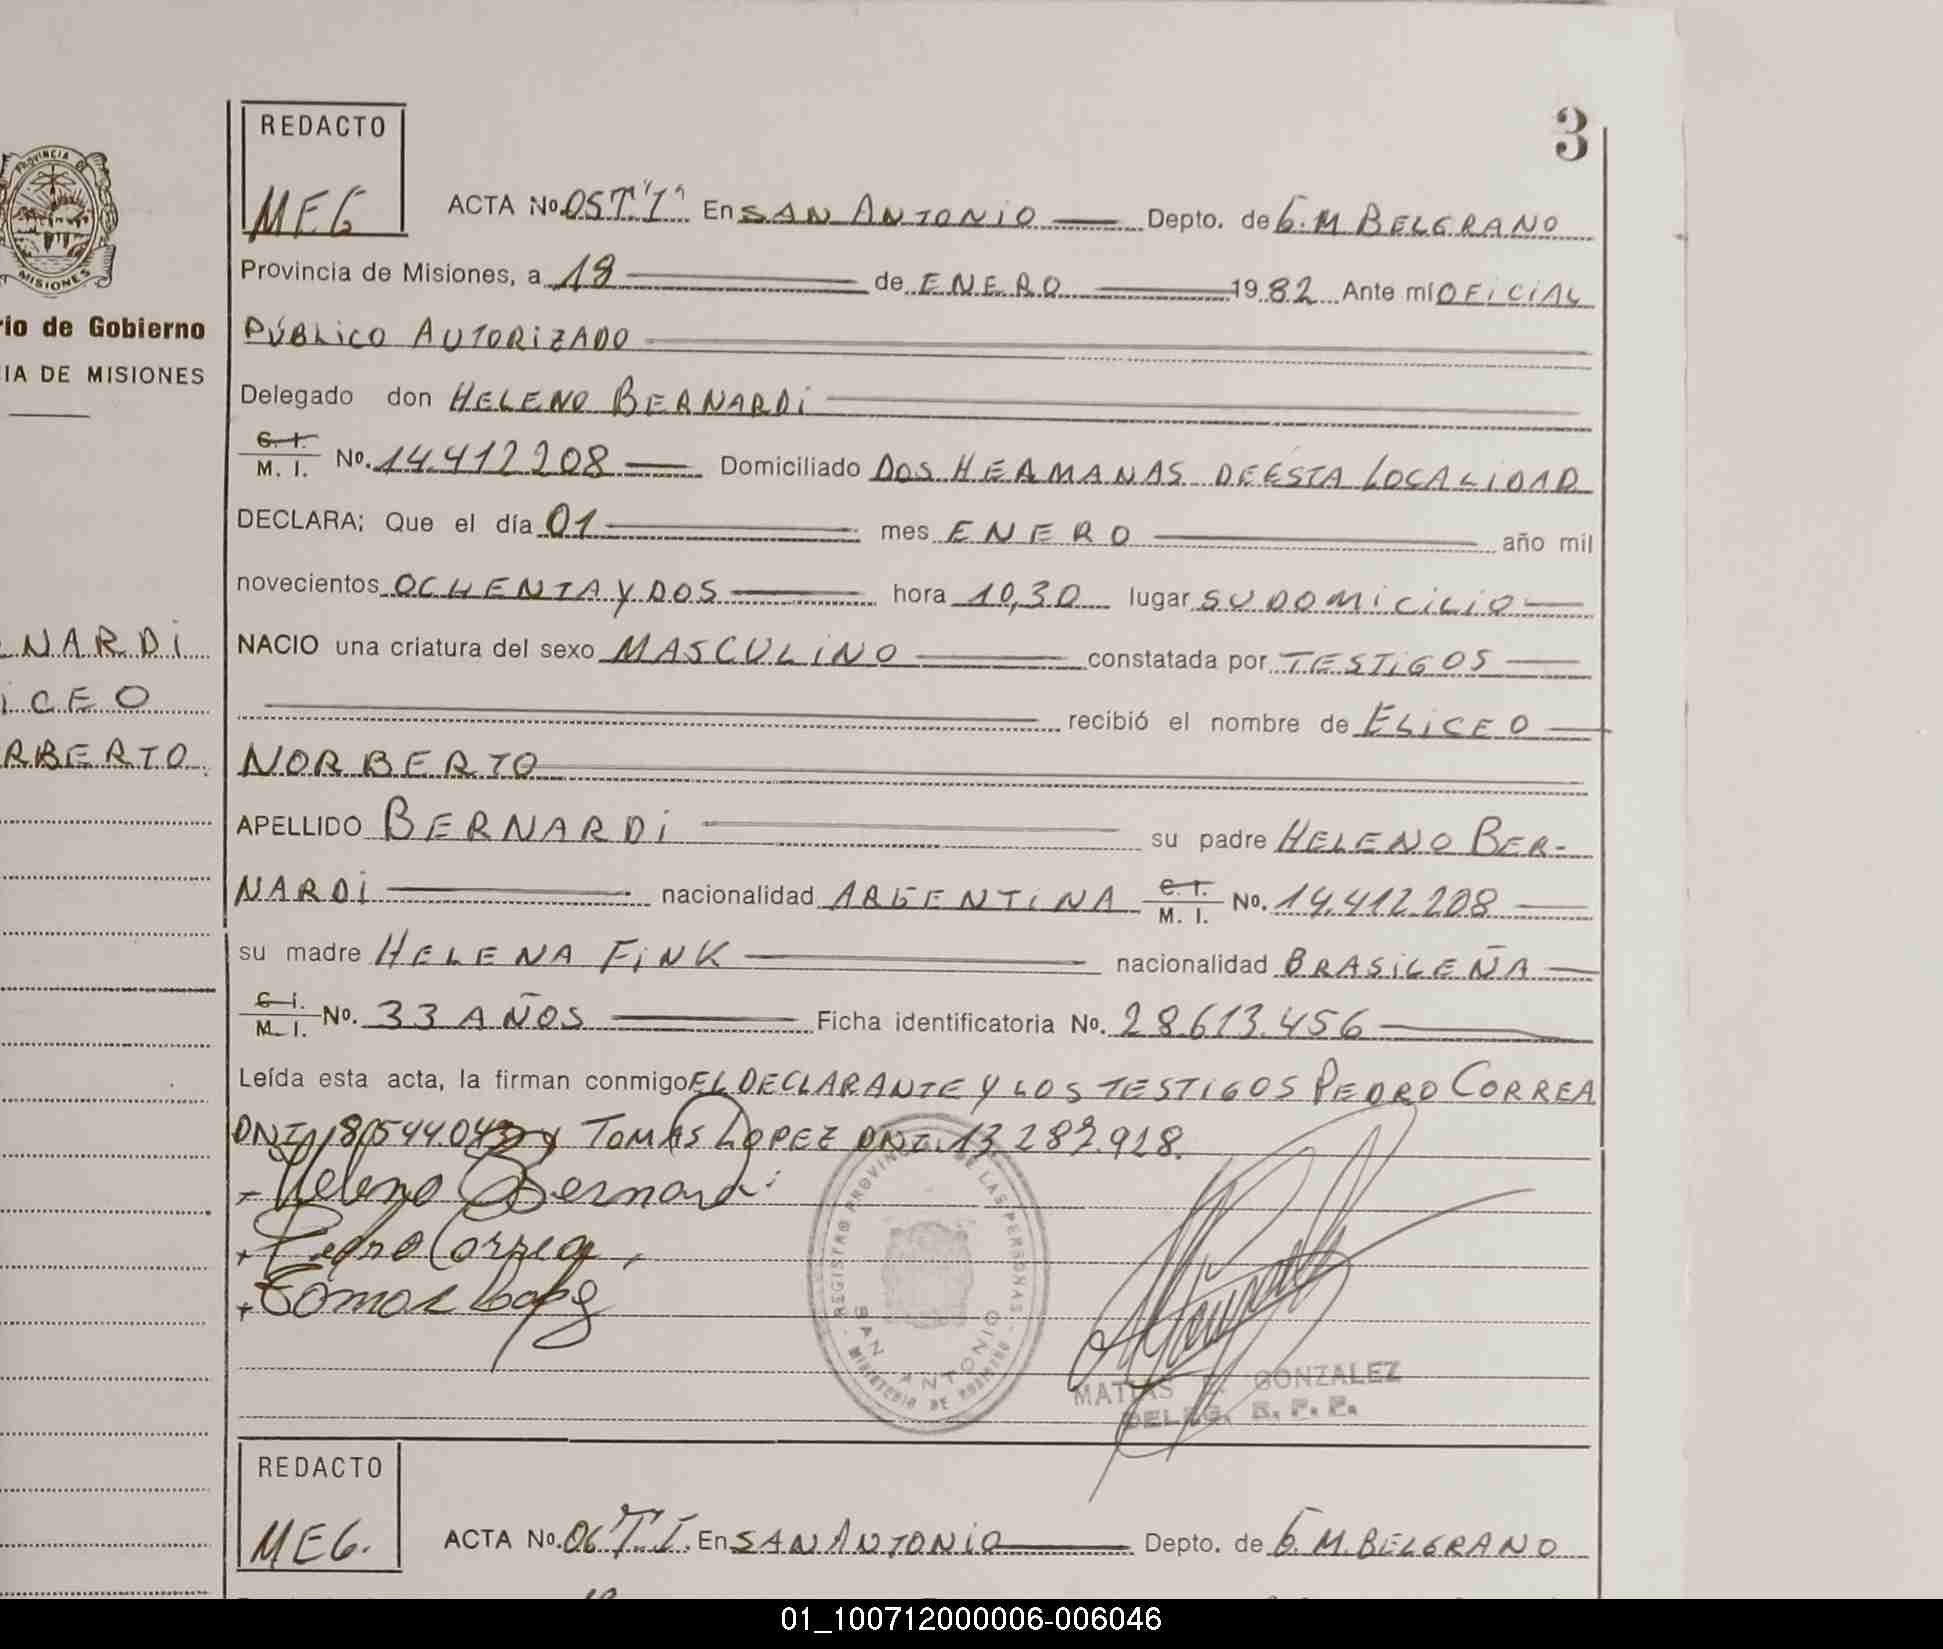 3
REDACTO
MEG
ACTA No. 05 T "I" En SAN ANTONIO Depto. de G. M BELGRANO
PROVINCIA DE
MISIONES
Provincia de Misiones, a 18 de ENERO 1982 Ante mí OFICIAL
rio de Gobierno
PÚBLICO AUTORIZADO
IA DE MISIONES
Delegado don HELENO BERNARDI
C. I.
M. I. No. 14.412.208 Domiciliado DOS HERMANAS DE ÉSTA LOCALIDAD
DECLARA; Que el día 01 mes ENERO año mil
novecientos OCHENTA Y DOS hora 10,30 lugar SU DOMICILIO
NARDI
NACIO una criatura del sexo MASCULINO constatada por TESTIGOS
ICEO
recibió el nombre de ELICEO
RBERTO
NORBERTO
APELLIDO BERNARDI su padre HELENO BER-
NARDI nacionalidad ARGENTINA C. I. M. I. No. 14.412.208
su madre HELENA FINK nacionalidad BRASILEÑA
C. I.
M. I. No. 33 AÑOS Ficha identificatoria No. 28.613.456
Leída esta acta, la firman conmigo EL DECLARANTE Y LOS TESTIGOS PEDRO CORREA
DNI y TOMAS LOPEZ DNI. 13.287.928.
Heleno Bernardi
Pedro Correa
Tomas Lopez
REGISTRO PROVINCIAL DE LAS PERSONAS
SAN ANTONIO
MINISTERIO DE GOBIERNO
MATIAS GONZALEZ
DELEG. R. P. P.
REDACTO
MEG.
ACTA No. 06 T. I. En SAN ANTONIO Depto. de G. M. BELGRANO
01_100712000006-006046